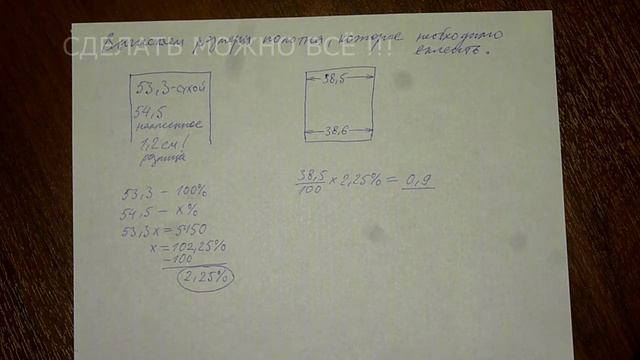 СДЕЛАТЬ МОЖНО ВСЕ !!!
Вычисляем размеры полотна которое необходимо
склеить.
53,3-сухой
54,5
намоченное
1,2 см!
разница
38,5
38,6
53,3 – 100%
54,5 – х%
53,3х = 5450
х = 102,25%
–100
2,25%
38,5/100 × 2,25% = 0,9